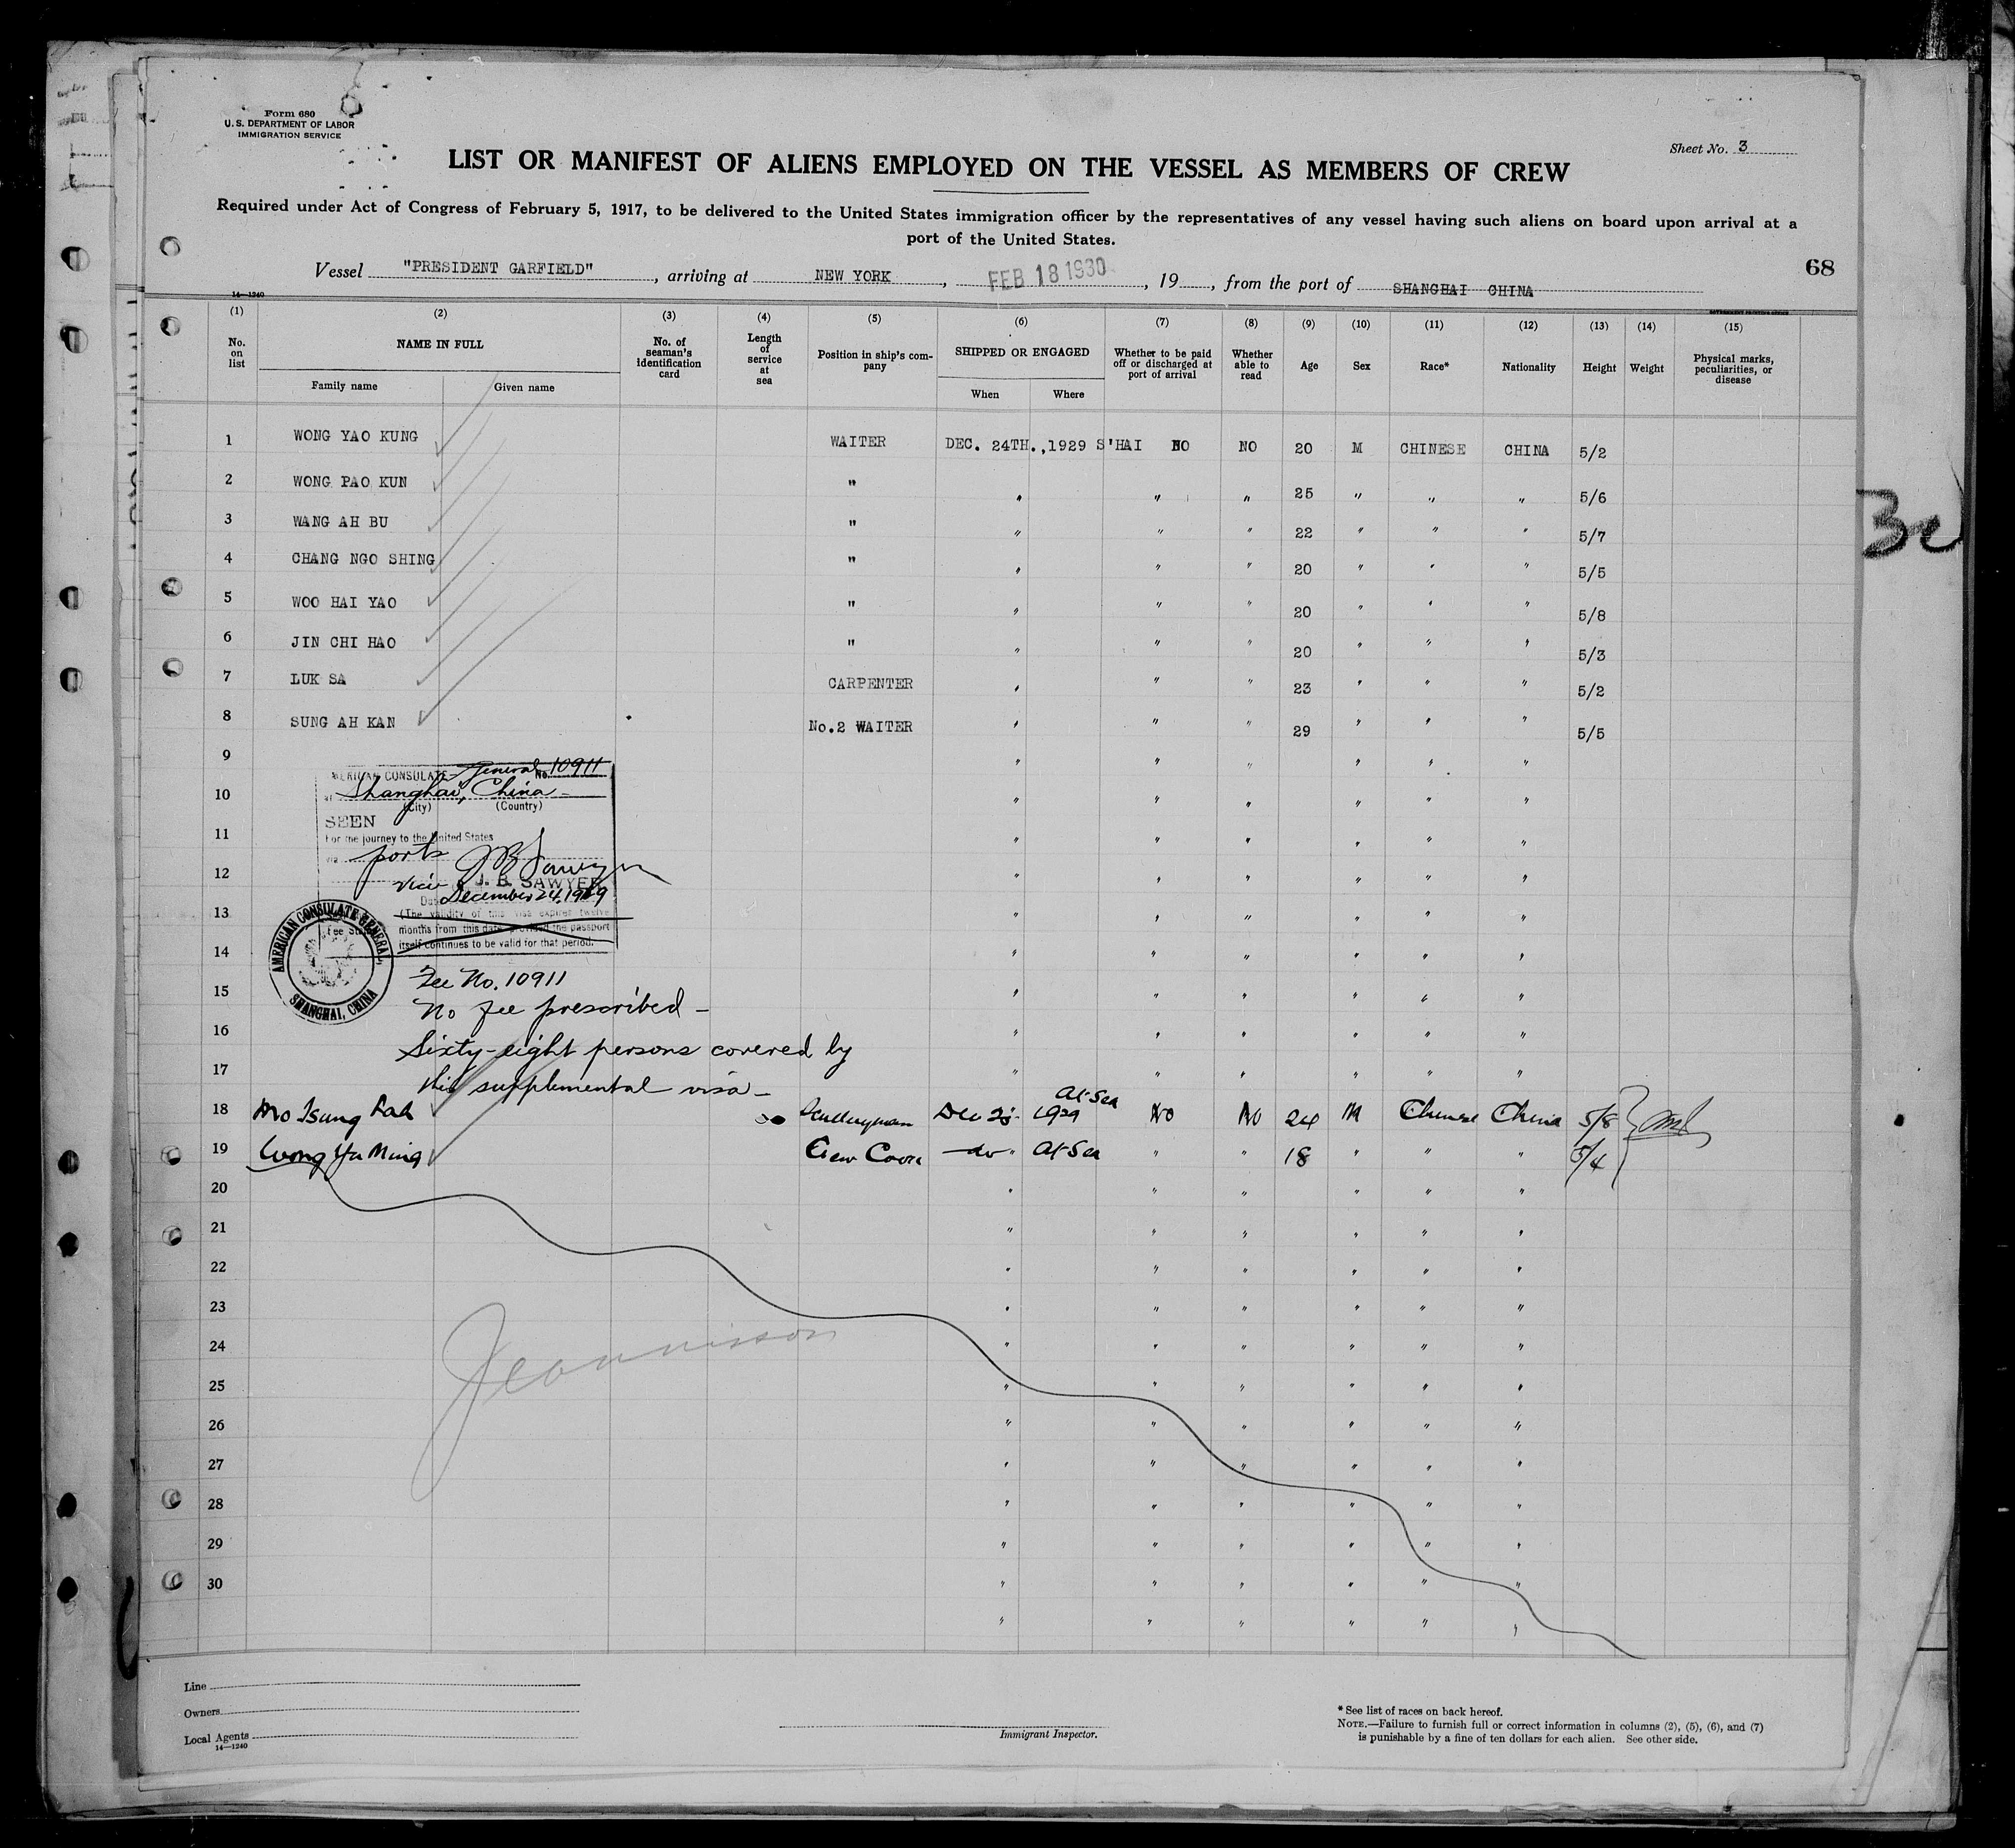 Form 680
U. S. DEPARTMENT OF LABOR
IMMIGRATION SERVICE
Sheet No. 3
LIST OR MANIFEST OF ALIENS EMPLOYED ON THE VESSEL AS MEMBERS OF CREW
Required under Act of Congress of February 5, 1917, to be delivered to the United States immigration officer by the representatives of any vessel having such aliens on board upon arrival at a
port of the United States.
Vessel "PRESIDENT GARFIELD", arriving at NEW YORK, FEB 18 1930, 19, from the port of SHANGHAI CHINA
68
14—1240
(1) (2) (3) (4) (5) (6) (7) (8) (9) (10) (11) (12) (13) (14) (15)
No. on list NAME IN FULL Family name Given name No. of seaman's identification card Length of service at sea Position in ship's company SHIPPED OR ENGAGED When Where Whether to be paid off or discharged at port of arrival Whether able to read Age Sex Race* Nationality Height Weight Physical marks, peculiarities, or disease
1 WONG YAO KUNG WAITER DEC. 24TH.,1929 S'HAI NO NO 20 M CHINESE CHINA 5/2
2 WONG PAO KUN " " " " 25 " " " 5/6
3 WANG AH BU " " " " 22 " " " 5/7
4 CHANG NGO SHING " " " " 20 " " " 5/5
5 WOO HAI YAO " " " " 20 " " " 5/8
6 JIN CHI HAO " " " " 20 " " " 5/3
7 LUK SA CARPENTER " " " 23 " " " 5/2
8 SUNG AH KAN No.2 WAITER " " " 29 " " " 5/5
9 " " " " " "
10 " " " " " "
11 " " " " " "
12 " " " " " "
13 " " " " " "
14 " " " " " "
15 " " " " " "
16 " " " " " "
17 " " " " " "
AMERICAN CONSULATE General No. 10911
at Shanghai, China
(City) (Country)
SEEN
For the journey to the United States
via ports
J B Sawyer
Vice J. B. SAWYER
Date December 24, 1929
(The validity of this visa expires twelve
months from this date provided the passport
itself continues to be valid for that period.
Fee Stamp
AMERICAN CONSULATE GENERAL, SHANGHAI, CHINA
Fee No. 10911
No fee prescribed -
Sixty-eight persons covered by
this supplemental visa -
18 Mo Tsung Sculleryman Dec 1929 At Sea No No 24 M Chinese China 5/8
19 Wong Yu Ming Crew Cook do At Sea " " 18 " " " 5/4
20 " " " " " "
21 " " " " " "
22 " " " " " "
23 " " " " " "
24 " " " " " "
25 " " " " " "
26 " " " " " "
27 " " " " " "
28 " " " " " "
29 " " " " " "
30 " " " " " "
" " " " " "
Line
Owners
Local Agents
14—1240
Immigrant Inspector.
* See list of races on back hereof.
NOTE.—Failure to furnish full or correct information in columns (2), (5), (6), and (7)
is punishable by a fine of ten dollars for each alien. See other side.